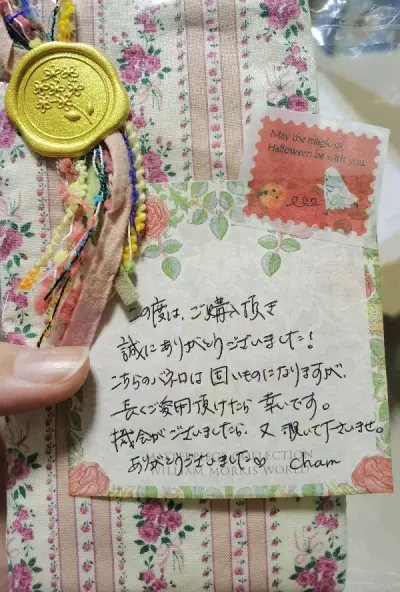 May the magic of
Halloween be with you.
この度は、ご購入頂き
誠にありがとうございました!
こちらのバネ口は固いものになりますが、
長くご愛用頂けたら幸いです。
機会がございましたら、又覗いて下さいませ。
ありがとうございました♡ Cham
WILLIAM MORRIS